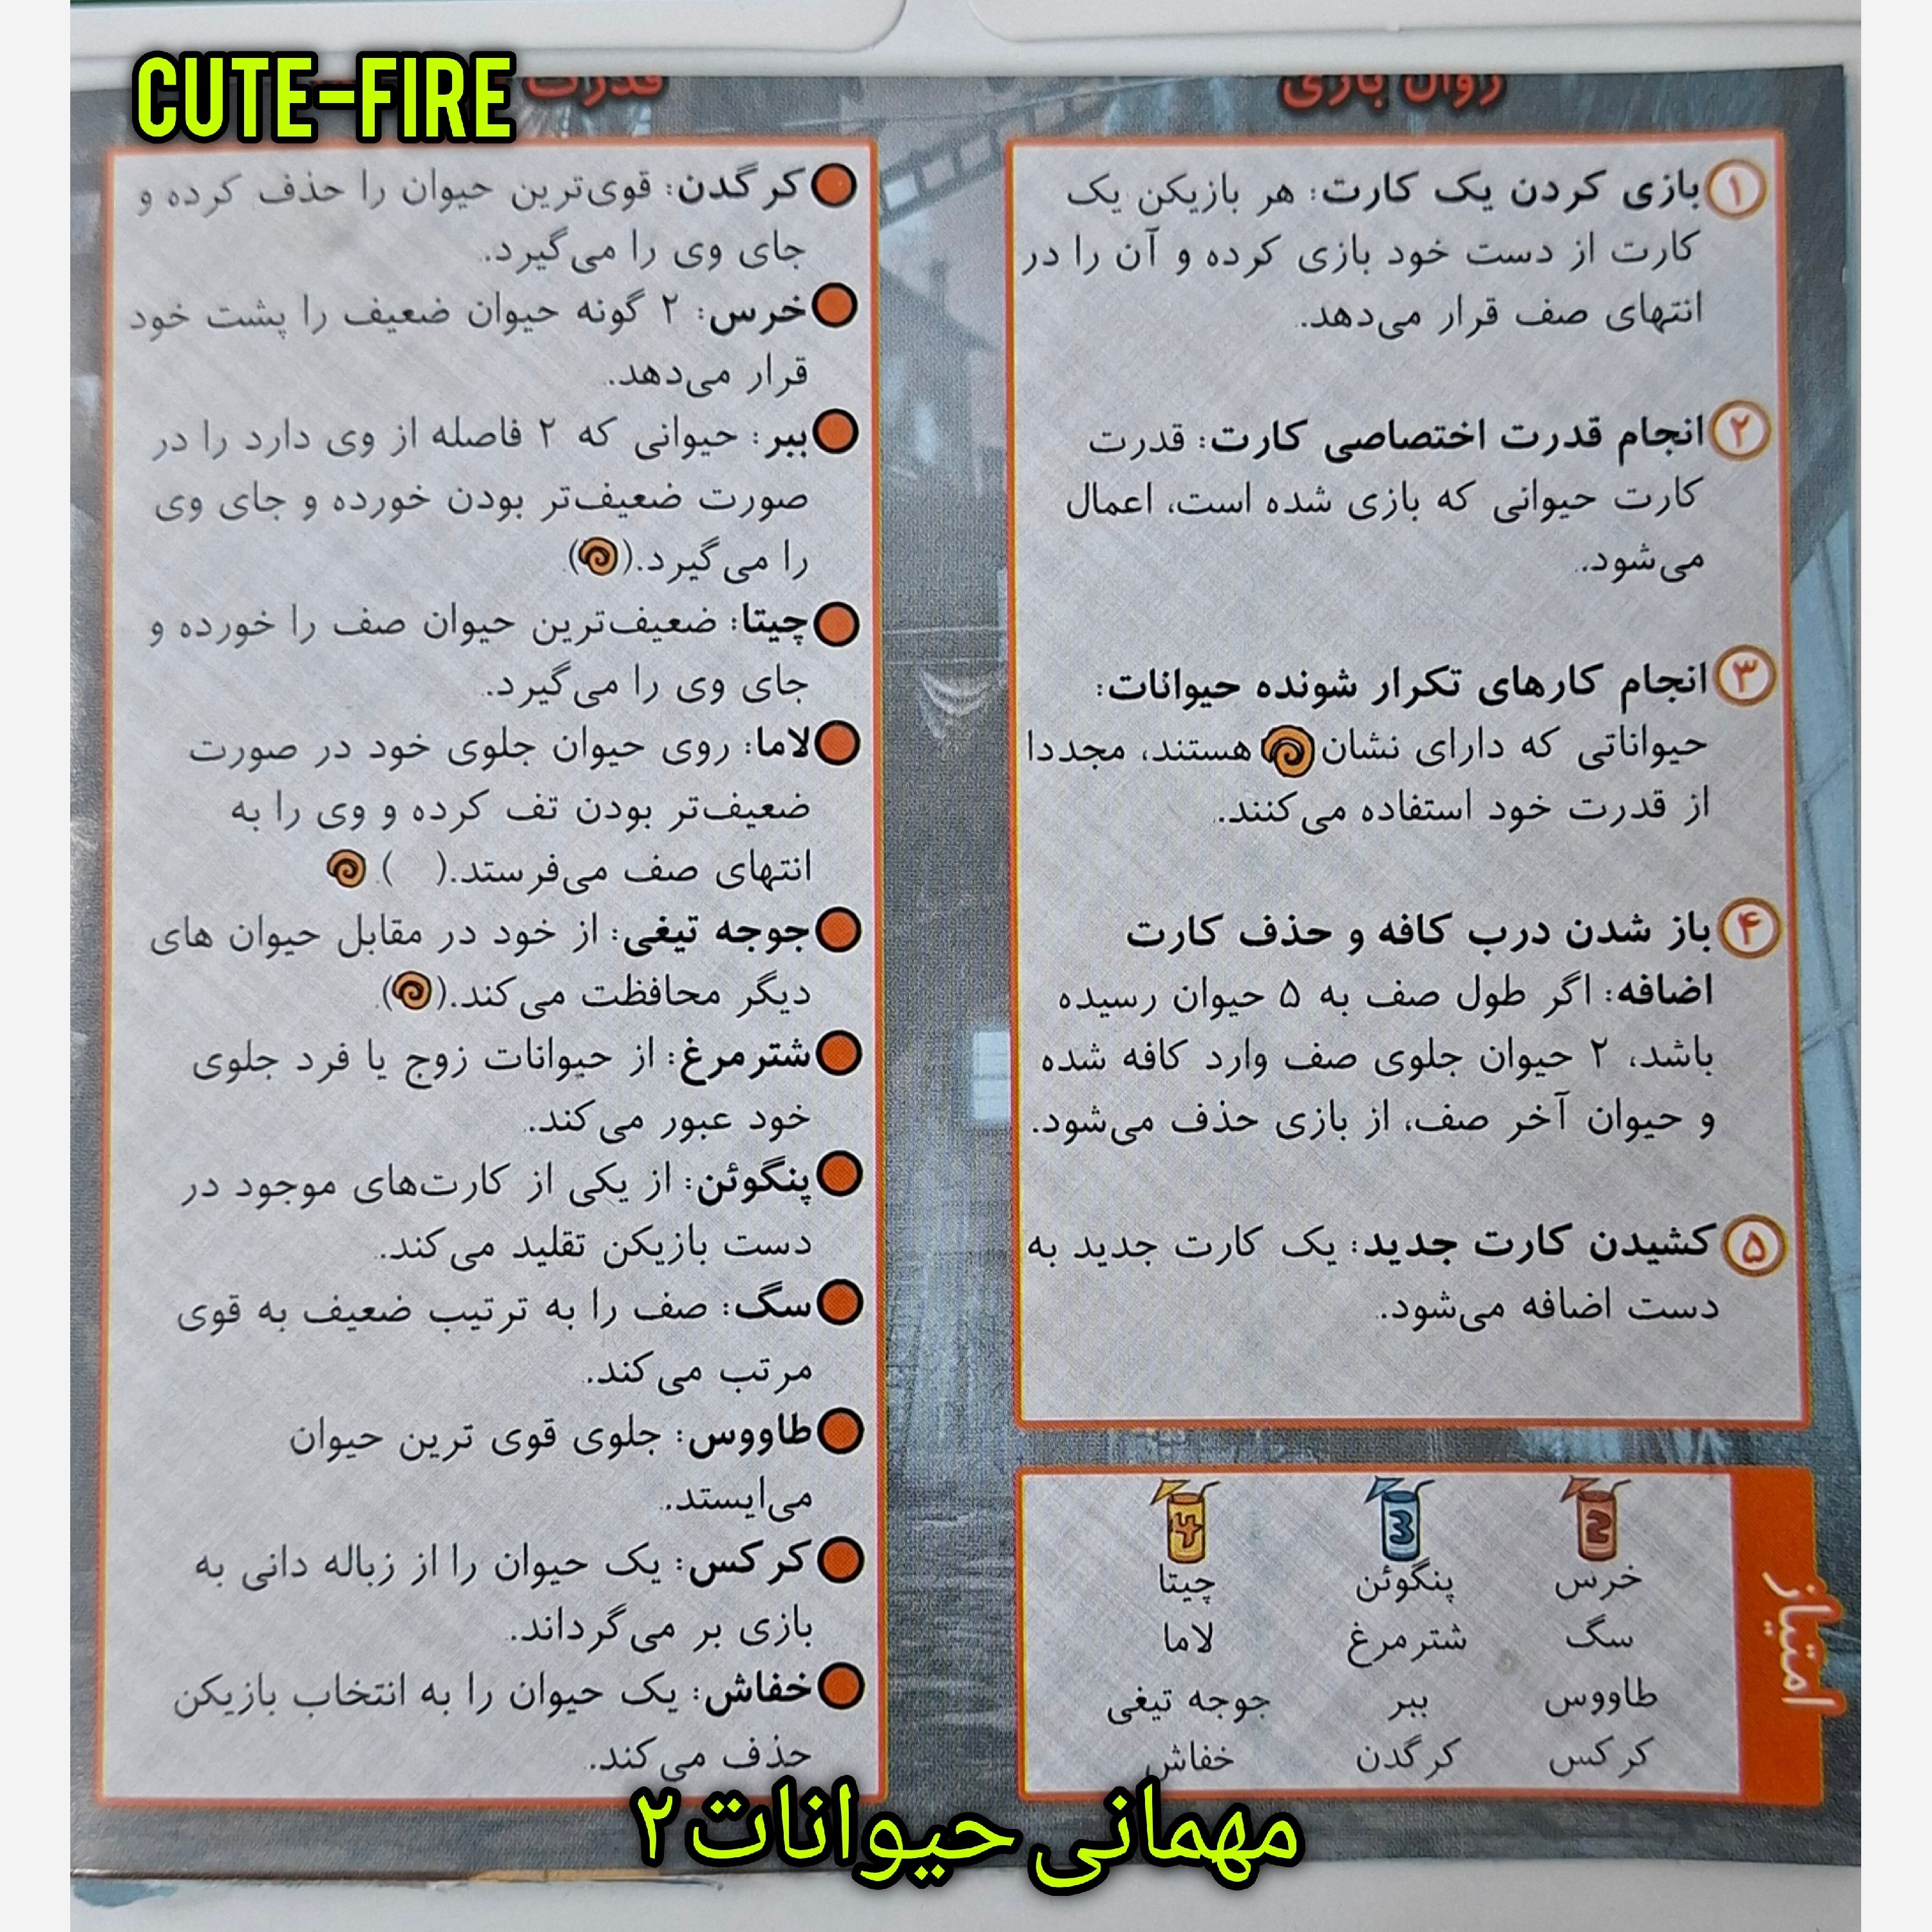 CUTE-FIRE
روال بازی
۱ بازی کردن یک کارت: هر بازیکن یک
کارت از دست خود بازی کرده و آن را در
انتهای صف قرار می‌دهد.
۲ انجام قدرت اختصاصی کارت: قدرت
کارت حیوانی که بازی شده است، اعمال
می‌شود.
۳ انجام کارهای تکرار شونده حیوانات:
حیواناتی که دارای نشان هستند، مجددا
از قدرت خود استفاده می‌کنند.
۴ باز شدن درب کافه و حذف کارت
اضافه: اگر طول صف به ۵ حیوان رسیده
باشد، ۲ حیوان جلوی صف وارد کافه شده
و حیوان آخر صف، از بازی حذف می‌شود.
۵ کشیدن کارت جدید: یک کارت جدید به
دست اضافه می‌شود.
امتیاز
2 3 4
خرس پنگوئن چیتا
سگ شترمرغ لاما
طاووس ببر جوجه تیغی
کرکس کرگدن خفاش
قدرت
کرگدن: قوی‌ترین حیوان را حذف کرده و
جای وی را می‌گیرد.
خرس: ۲ گونه حیوان ضعیف را پشت خود
قرار می‌دهد.
ببر: حیوانی که ۲ فاصله از وی دارد را در
صورت ضعیف‌تر بودن خورده و جای وی
را می‌گیرد.()
چیتا: ضعیف‌ترین حیوان صف را خورده و
جای وی را می‌گیرد.
لاما: روی حیوان جلوی خود در صورت
ضعیف‌تر بودن تف کرده و وی را به
انتهای صف می‌فرستد.( ).
جوجه تیغی: از خود در مقابل حیوان های
دیگر محافظت می‌کند.()
شترمرغ: از حیوانات زوج یا فرد جلوی
خود عبور می‌کند.
پنگوئن: از یکی از کارت‌های موجود در
دست بازیکن تقلید می‌کند.
سگ: صف را به ترتیب ضعیف به قوی
مرتب می‌کند.
طاووس: جلوی قوی ترین حیوان
می‌ایستد.
کرکس: یک حیوان را از زباله دانی به
بازی بر می‌گرداند.
خفاش: یک حیوان را به انتخاب بازیکن
حذف می‌کند.
مهمانی حیوانات۲